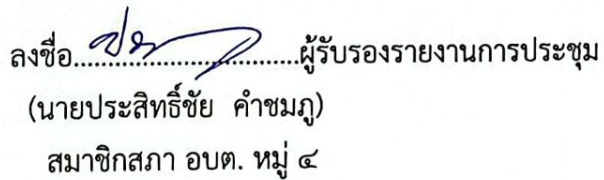 ลงชื่อ..................................ผู้รับรองรายงานการประชุม
(นายประสิทธิ์ชัย คำชมภู)
สมาชิกสภา อบต. หมู่ ๔